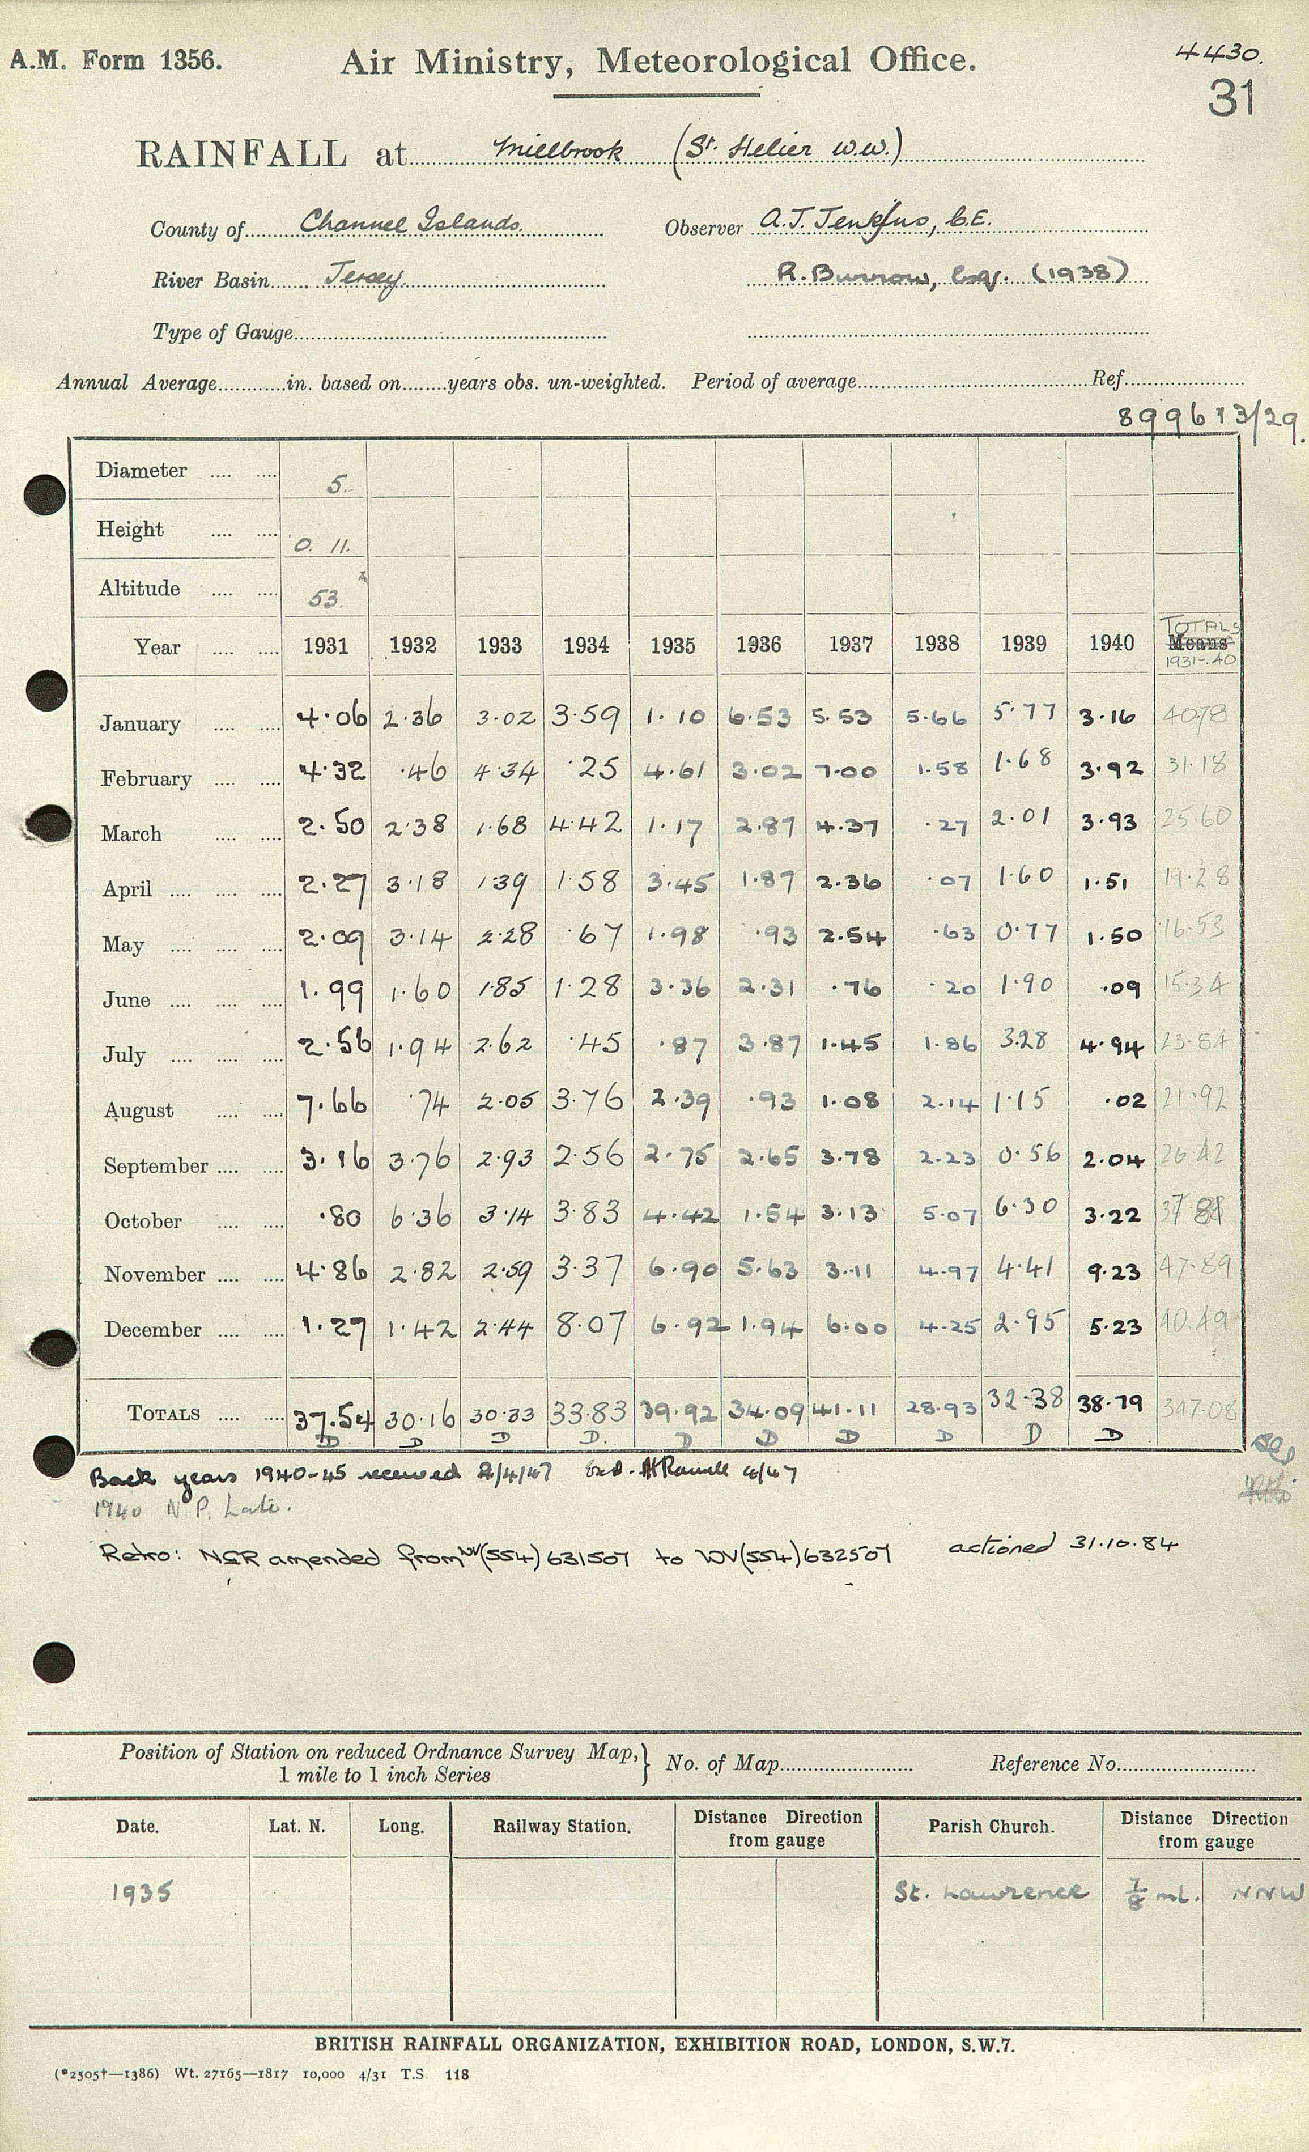 A.M. Form 1356.
Air Ministry, Meteorological Office.
4430.
31
RAINFALL at Millbrook (St. Helier W.W.)
County of Channel Islands. Observer A.T. Jenkins, C.E.
River Basin Jersey. R. Burrow, Esq. (1938)
Type of Gauge
Annual Average in. based on years obs. un-weighted. Period of average Ref.
Diameter 5.
Height 0. 11.
Altitude 53
Year 1931 1932 1933 1934 1935 1936 1937 1938 1939 1940 TOTALS Means 1931-40
January 4.06 2.36 3.02 3.59 1.10 6.53 5.53 5.66 5.77 3.16 40.78
February 4.32 .46 4.34 .25 4.61 3.02 7.00 1.58 1.68 3.92 31.18
March 2.50 2.38 1.68 4.42 1.17 2.87 4.37 .27 2.01 3.93 25.60
April 2.27 3.18 1.39 1.58 3.45 1.87 2.36 .07 1.60 1.51 19.28
May 2.09 3.14 2.28 .67 1.98 .93 2.54 .63 0.77 1.50 16.53
June 1.99 1.60 1.85 1.28 3.36 2.31 .76 .20 1.90 .09 15.34
July 2.56 1.94 2.62 .45 .87 3.87 1.45 1.86 3.28 4.94 23.84
August 7.66 .74 2.05 3.76 2.39 .93 1.08 2.14 1.15 .02 21.92
September 3.16 3.76 2.93 2.56 2.75 2.65 3.78 2.23 0.56 2.04 26.42
October .80 6.36 3.14 3.83 4.42 1.54 3.13 5.07 6.30 3.22
November 4.86 2.82 2.59 3.37 6.90 5.63 3.11 4.97 4.41 9.23 47.89
December 1.27 1.42 2.44 8.07 6.92 1.94 6.00 4.25 2.95 5.23 40.49
TOTALS 37.54 30.16 30.33 33.83 39.92 34.09 41.11 28.93 32.38 38.79 347.08
D D D D. D D D D D D
Back years 1940-45 received 2/4/47
1940 N.P. Late.
Retro: NGR amended from WV(554)631507 to WV(554)632507 actioned 31.10.84
Position of Station on reduced Ordnance Survey Map, 1 mile to 1 inch Series } No. of Map Reference No.
Date. Lat. N. Long. Railway Station. Distance Direction from gauge Parish Church. Distance Direction from gauge
1935 St. Lawrence 7/8 ml. NNW
BRITISH RAINFALL ORGANIZATION, EXHIBITION ROAD, LONDON, S.W.7.
(*2505†—1386) Wt. 27165—1817 10,000 4/31 T.S 118